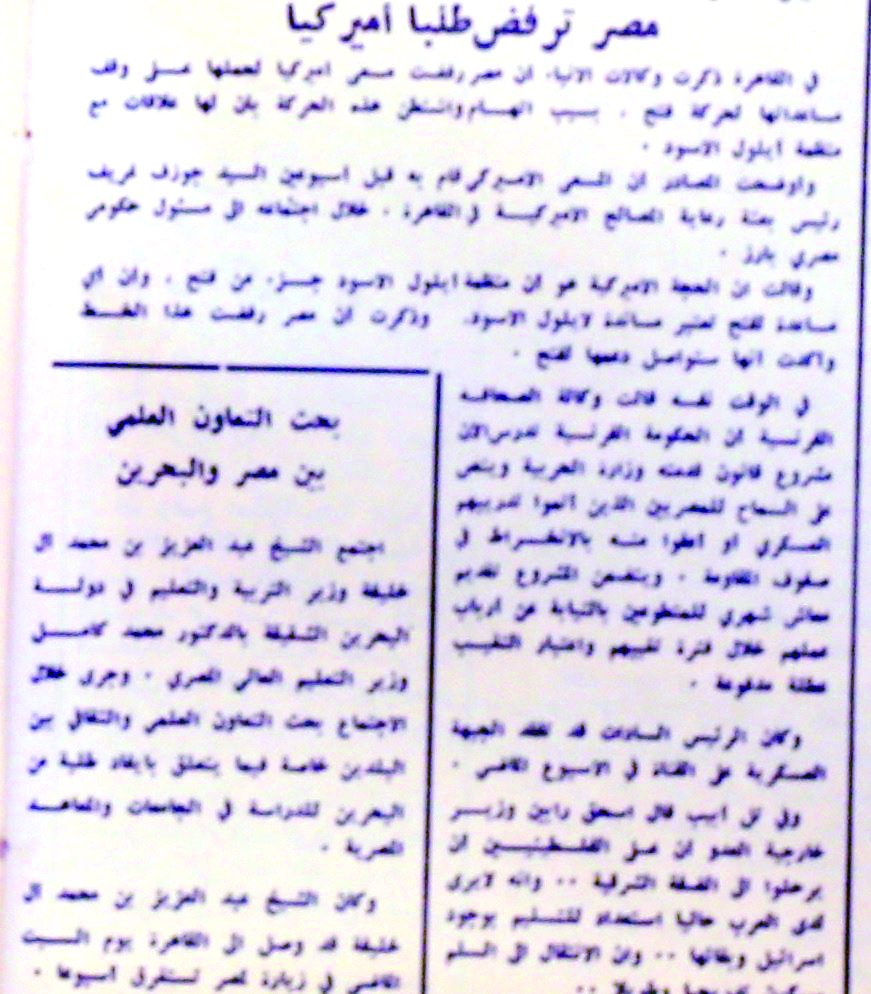 مصر ترفض طلبا أميركيا
في القاهرة ذكرت وكالات الانباء ان مصر رفضت مسعى اميركيا لحملها على وقف
مساعداتها لحركة فتح ، بسبب اتهام واشنطن هذه الحركة بان لها علاقات مع
منظمة أيلول الاسود .
وأوضحت المصادر ان المسعى الاميركي قام به قبل اسبوعين السيد جوزف غريف
رئيس بعثة رعاية المصالح الاميركية في القاهرة ، خلال اجتماعه الى مسئول حكومي
مصري بارز .
وقالت ان الحجة الاميركية هو ان منظمة ايلول الاسود جزء من فتح ، وان اي
مساعدة لفتح تعتبر مساعدة لايلول الاسود. وذكرت ان مصر رفضت هذا الضغط
واكدت انها ستواصل دعمها لفتح .
في الوقت نفسه قالت وكالة الصحافة
الفرنسية ان الحكومة الفرنسية تدرس الان
مشروع قانون قدمته وزارة الحربية وينص
على السماح للمصريين الذين أتموا تدريبهم
العسكري او اعفوا منه بالانخراط في
صفوف المقاومة . ويتضمن المشروع تقديم
معاش شهري للمتطوعين بالنيابة عن ارباب
عملهم خلال فترة تغيبهم واعتبار التغيب
عطلة مدفوعة .
وكان الرئيس السادات قد تفقد الجبهة
العسكرية على القناة في الاسبوع الماضي .
وفي تل أبيب قال اسحق رابين وزير
خارجية العدو ان على الفلسطينيين ان
يرحلوا الى الضفة الشرقية .. وانه لايرى
لدى العرب حاليا استعداد للتسليم بوجود
اسرائيل وبقائها .. وان الانتقال الى السلم
سيكون تدريجيا وطويلا ..
بحث التعاون العلمي
بين مصر والبحرين
اجتمع الشيخ عبد العزيز بن محمد ال
خليفة وزير التربية والتعليم في دولة
البحرين الشقيقة بالدكتور محمد كامل
وزير التعليم العالي المصري . وجرى خلال
الاجتماع بحث التعاون العلمي والثقافي بين
البلدين خاصة فيما يتعلق بايفاد طلبة من
البحرين للدراسة في الجامعات والمعاهد
المصرية .
وكان الشيخ عبد العزيز بن محمد ال
خليفة قد وصل الى القاهرة يوم السبت
الماضي في زيارة لمصر تستغرق أسبوعا .